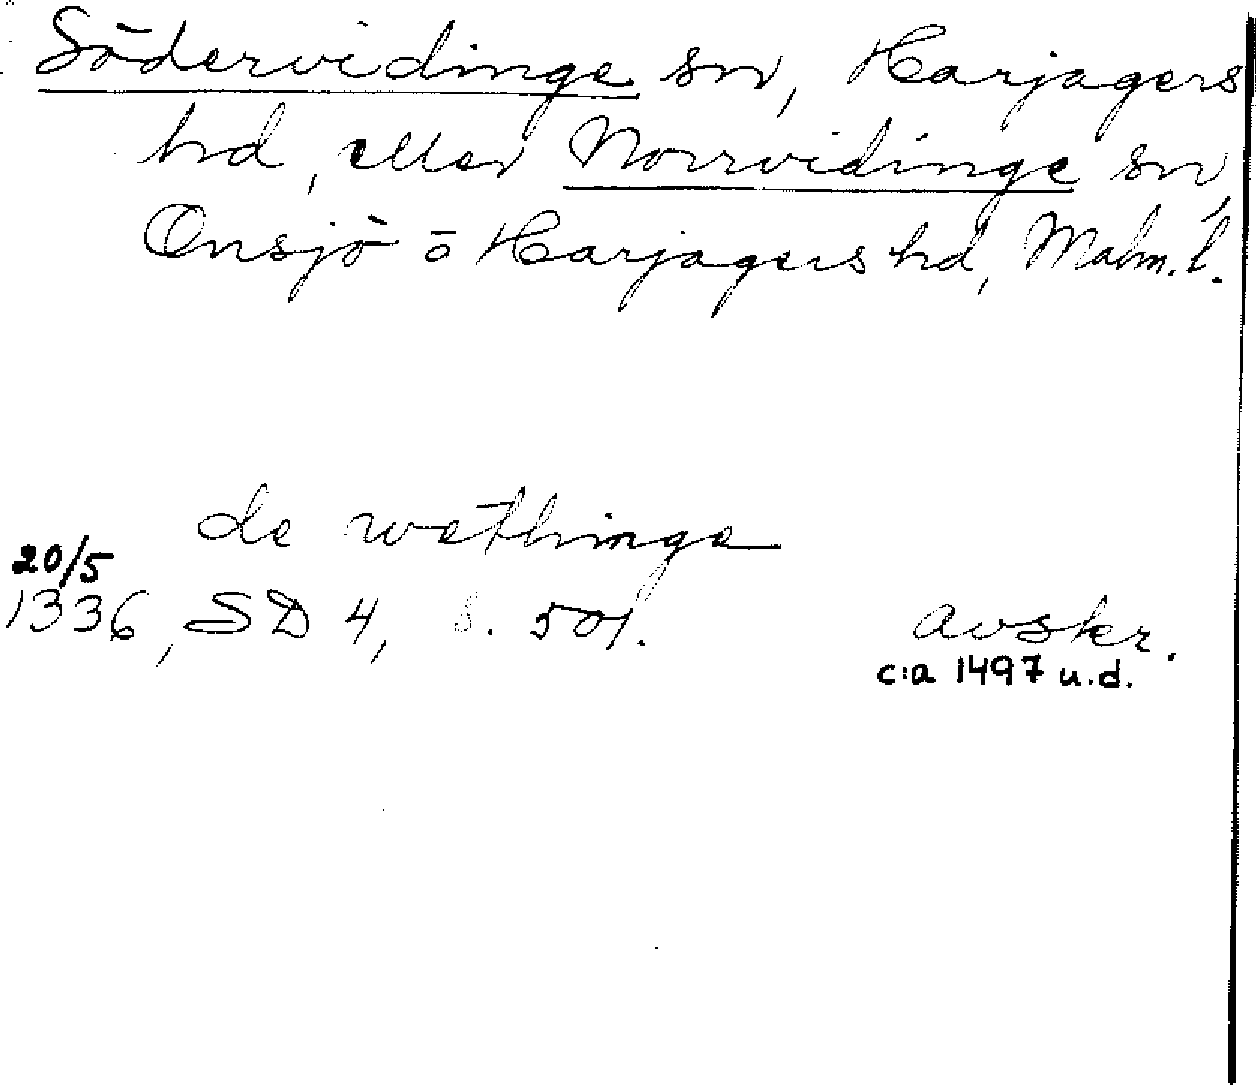 Södervidinge sn, Harjagers
hd, eller Norrvidinge sn,
Onsjö o Harjagers hd, Malm. l.
de wethinge
20/5
1336, SD 4, s. 501.
avskr.
c:a 1497 u.d.